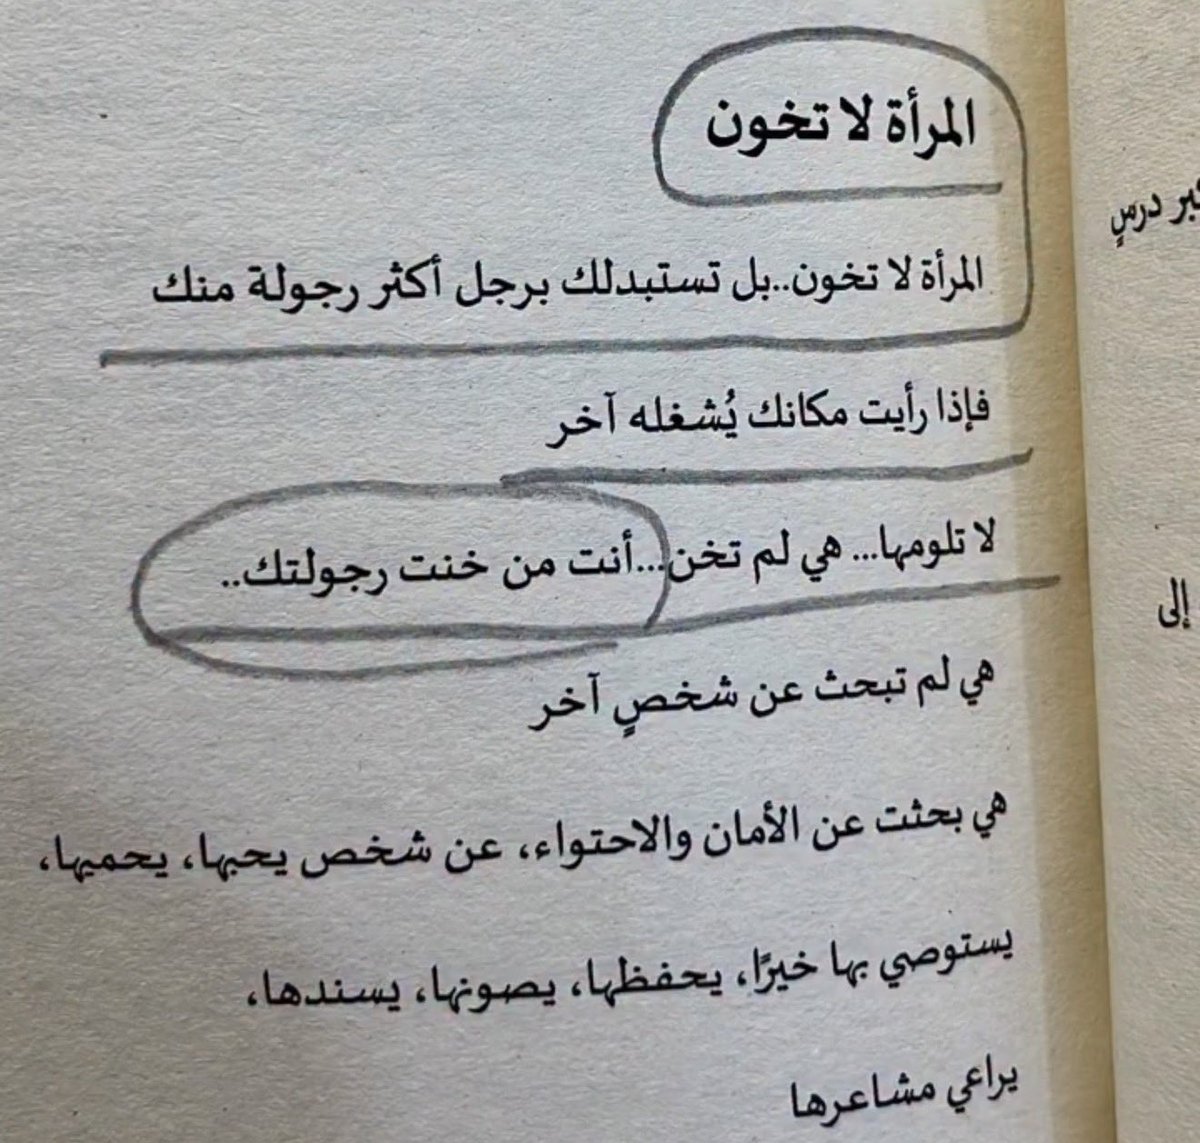 المرأة لا تخون
المرأة لا تخون..بل تستبدلك برجل أكثر رجولة منك
فإذا رأيت مكانك يُشغله آخر
لا تلومها... هي لم تخن...أنت من خنت رجولتك..
هي لم تبحث عن شخصٍ آخر
هي بحثت عن الأمان والاحتواء، عن شخص يحبها، يحميها،
يستوصي بها خيرًا، يحفظها، يصونها، يسندها،
يراعي مشاعرها
درسٍ
إلى